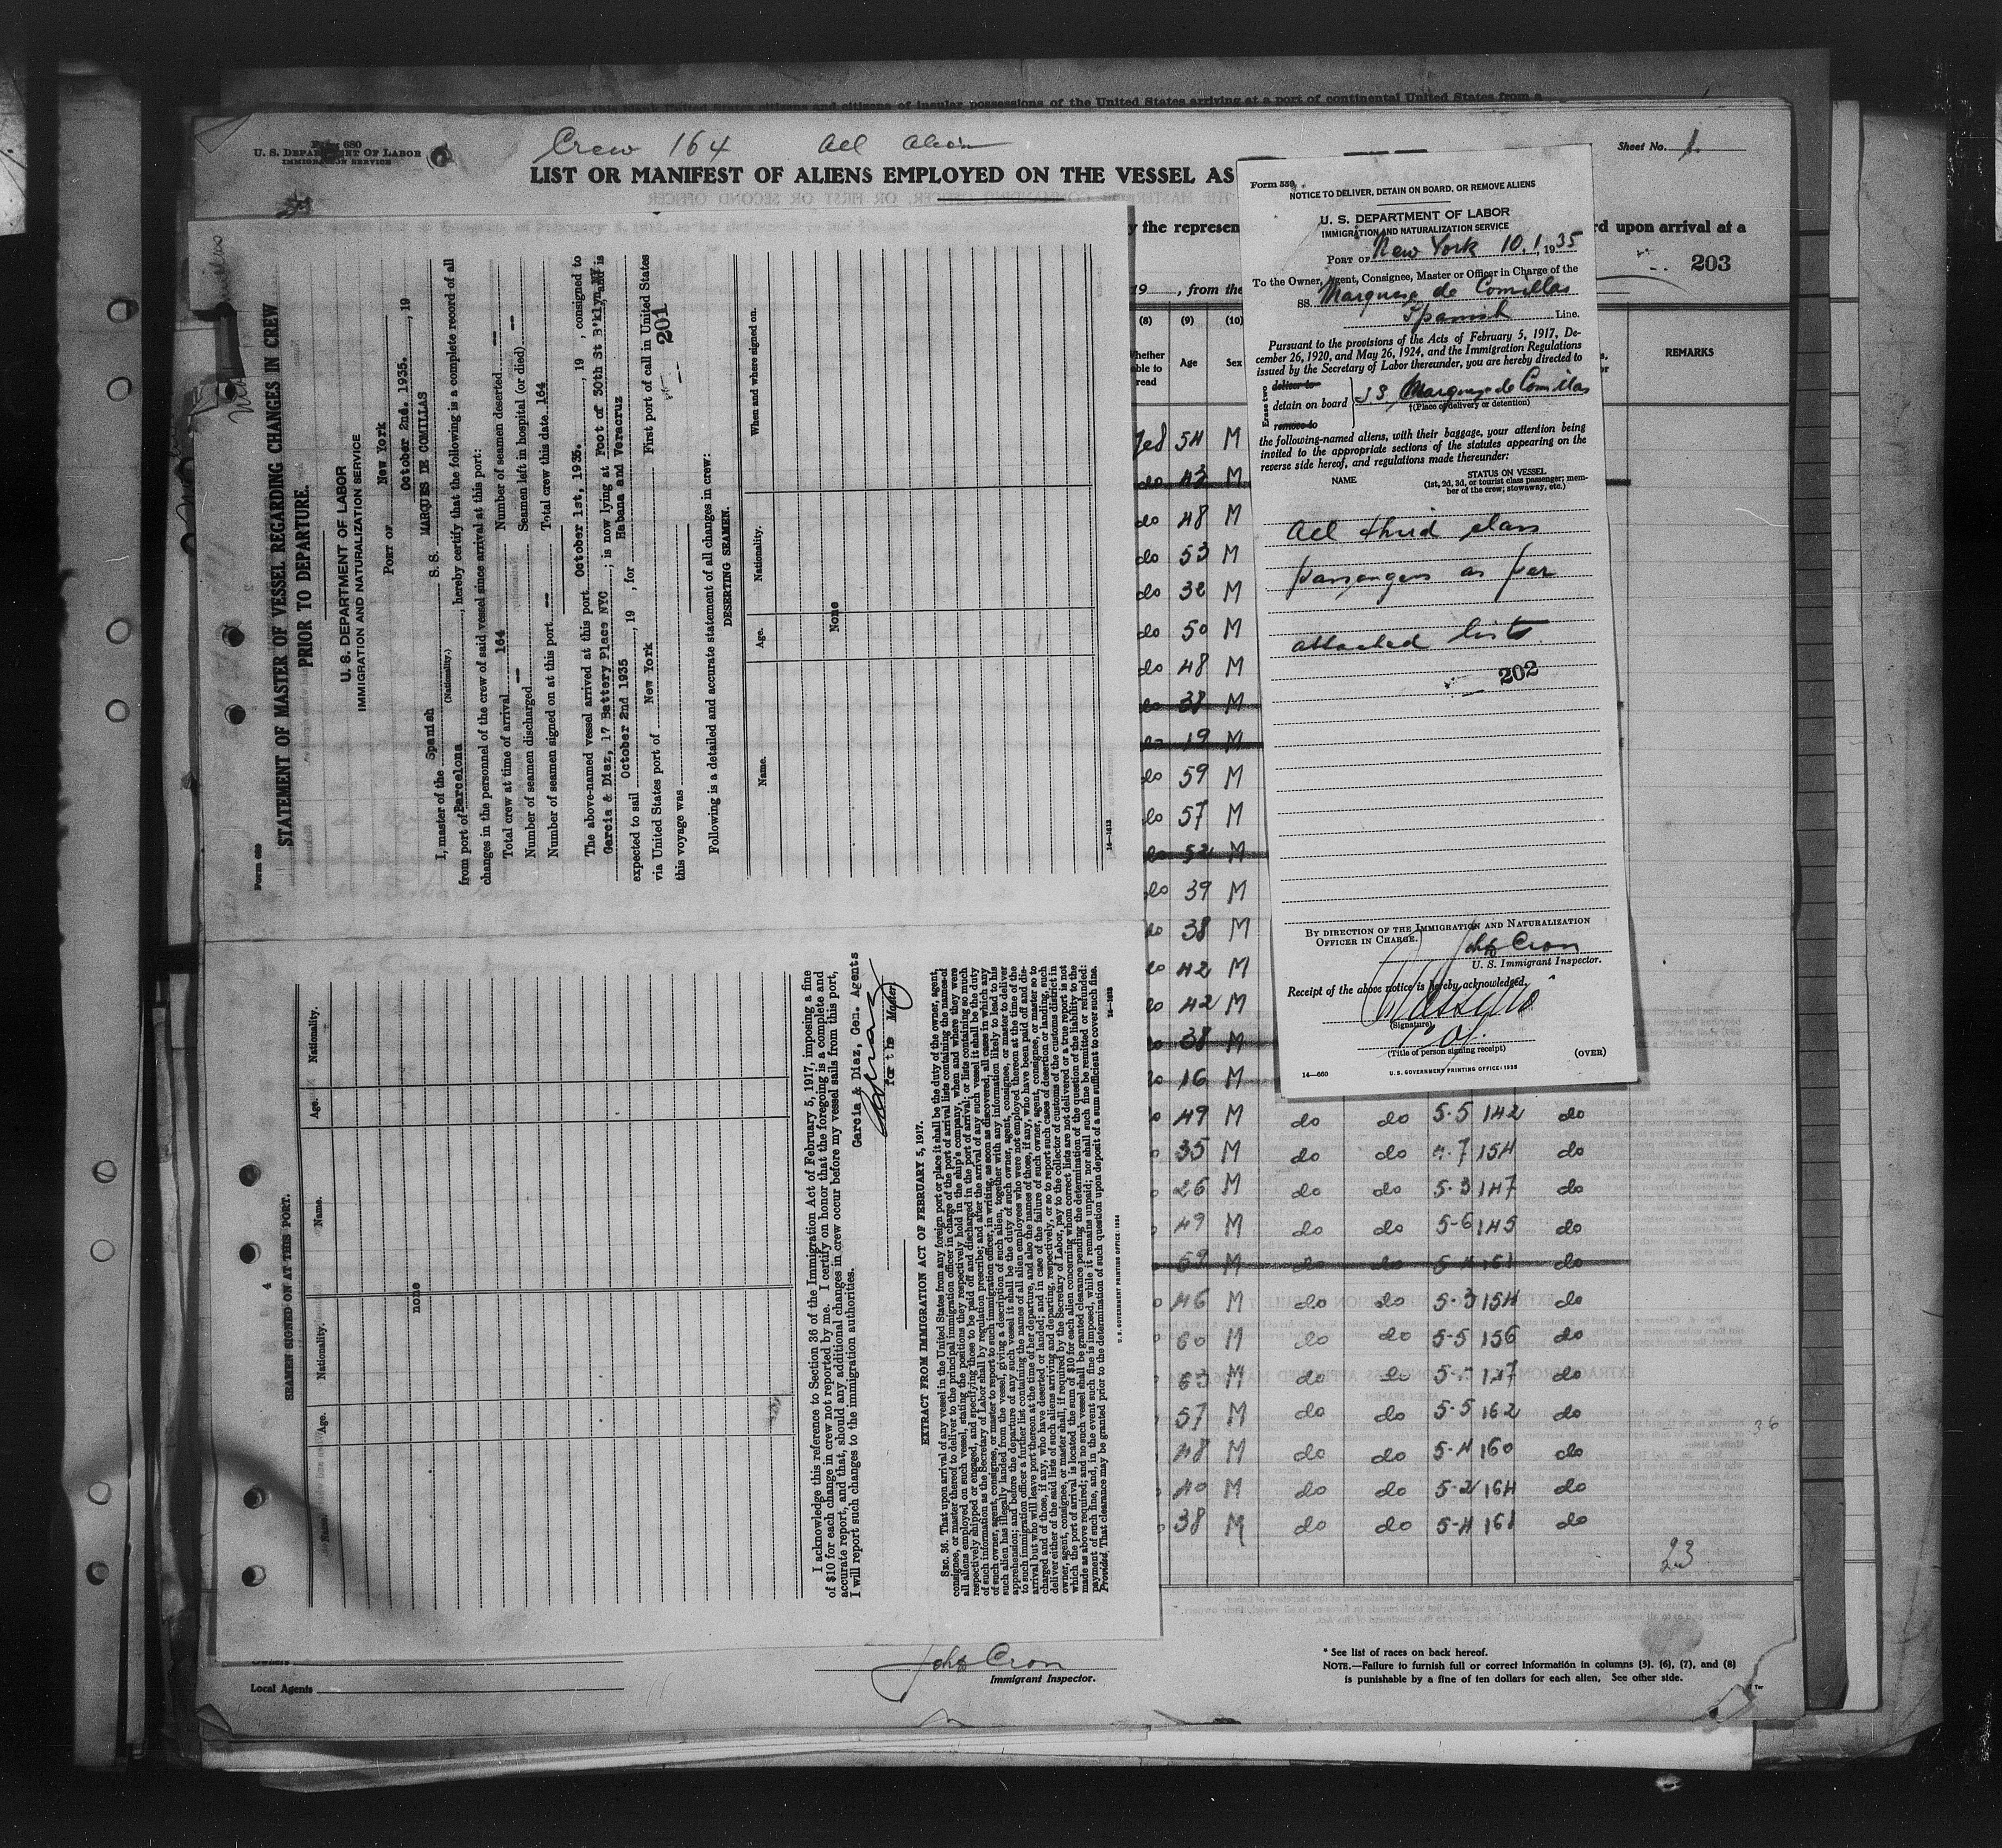 Record on this blank United States citizens and citizens of insular possessions of the United States arriving at a port of continental United States from a
Form 680
U. S. DEPARTMENT OF LABOR
IMMIGRATION SERVICE
Crew 164 All Alien
Sheet No. 1.
LIST OR MANIFEST OF ALIENS EMPLOYED ON THE VESSEL AS
y the represen
rd upon arrival at a
203
19 , from the
(8) (9) (10)
Whether able to read
Age
Sex
REMARKS
Yes 54 M
do 43 M
do 48 M
do 53 M
do 32 M
do 50 M
do 48 M
do 38 M
do 19 M
do 59 M
do 57 M
do 52 M
do 39 M
do 38 M
do 42 M
do 42 M
do 38 M
do 16 M
49 M do do 5-5 142 do
35 M do do 7 154 do
26 M do do 5-3 147 do
49 M do do 5-6 145 do
59 M do do 5-4 161 do
46 M do do 5-3 154 do
60 M do do 5-5 156 do
63 M do do 5- do
57 M do do 5-5 162 do
48 M do do 5-4 160 do
40 M do do 5-2 164 do
38 M do do 5-4 161 do
36
23
Local Agents
John Cron
Immigrant Inspector.
* See list of races on back hereof.
NOTE.—Failure to furnish full or correct information in columns (5), (6), (7), and (8)
is punishable by a fine of ten dollars for each alien. See other side.
Form 689
STATEMENT OF MASTER OF VESSEL REGARDING CHANGES IN CREW
PRIOR TO DEPARTURE.
U. S. DEPARTMENT OF LABOR
IMMIGRATION AND NATURALIZATION SERVICE
PORT OF New York
October 2nd. 1935. , 19
I, master of the Spanish S. S. MARQUES DE COMILLAS
(Nationality.)
from port of Barcelona , hereby certify that the following is a complete record of all
changes in the personnel of the crew of said vessel since arrival at this port:
Total crew at time of arrival 164 Number of seamen deserted --
Number of seamen discharged -- Seamen left in hospital (or died) --
Number of seamen signed on at this port -- Total crew this date 164
The above-named vessel arrived at this port October 1st, 1935. , 19 , consigned to
Garcia & Diaz, 17 Battery Place NYC ; is now lying at Foot of 30th St B'klyn NY and is
expected to sail October 2nd 1935 , 19 , for Habana and Veracruz
via United States port of New York First port of call in United States
this voyage was
201
Following is a detailed and accurate statement of all changes in crew:
DESERTING SEAMEN.
Name. Age. Nationality. When and where signed on.
None
14—1613
4
SEAMEN SIGNED ON AT THIS PORT.
Name. Age. Nationality. Name. Age. Nationality.
none
I acknowledge this reference to Section 36 of the Immigration Act of February 5, 1917, imposing a fine
of $10 for each change in crew not reported by me. I certify on honor that the foregoing is a complete and
accurate report, and that, should any additional changes in crew occur before my vessel sails from this port,
I will report such changes to the immigration authorities.
Garcia & Diaz, Gen. Agents
for the Master
EXTRACT FROM IMMIGRATION ACT OF FEBRUARY 5, 1917.
SEC. 36. That upon arrival of any vessel in the United States from any foreign port or place it shall be the duty of the owner, agent,
consignee, or master thereof to deliver to the principal immigration officer in charge of the port of arrival lists containing the names of
all aliens employed on such vessel, stating the positions they respectively hold in the ship's company, when and where they were
respectively shipped or engaged, and specifying those to be paid off and discharged in the port of arrival; or lists containing so much
of such information as the Secretary of Labor shall by regulation prescribe; and after the arrival of any such vessel it shall be the duty
of such owner, agent, consignee, or master to report to such immigration officer, in writing, as soon as discovered, all cases in which any
such alien has illegally landed from the vessel, giving a description of such alien, together with any information likely to lead to his
apprehension; and before the departure of any such vessel it shall be the duty of such owner, agent, consignee, or master to deliver
to such immigration officer a further list containing the names of all alien employees who were not employed thereon at the time of the
arrival but who will leave port thereon at the time of her departure, and also the names of those, if any, who have been paid off and dis-
charged and of those, if any, who have deserted or landed; and in case of the failure of such owner, agent, consignee, or master so to
deliver either of the said lists of such aliens arriving and departing, respectively, or so to report such cases of desertion or landing, such
owner, agent, consignee, or master shall, if required by the Secretary of Labor, pay to the collector of customs of the customs district in
which the port of arrival is located the sum of $10 for each alien concerning whom correct lists are not delivered or a true report is not
made as above required; and no such vessel shall be granted clearance pending the determination of the question of the liability to the
payment of such fine, and, in the event such fine is imposed, while it remains unpaid; nor shall such fine be remitted or refunded:
Provided, That clearance may be granted prior to the determination of such question upon deposit of a sum sufficient to cover such fine.
14—1613
U. S. GOVERNMENT PRINTING OFFICE: 1934
Form 559
NOTICE TO DELIVER, DETAIN ON BOARD, OR REMOVE ALIENS
U. S. DEPARTMENT OF LABOR
IMMIGRATION AND NATURALIZATION SERVICE
PORT OF New York 10.1, 1935
To the Owner, Agent, Consignee, Master or Officer in Charge of the
SS. Marques de Comillas
Spanish Line.
Pursuant to the provisions of the Acts of February 5, 1917, De-
cember 26, 1920, and May 26, 1924, and the Immigration Regulations
issued by the Secretary of Labor thereunder, you are hereby directed to
Erase two
deliver to
detain on board SS, Marques de Comillas
remove to
†(Place of delivery or detention)
the following-named aliens, with their baggage, your attention being
invited to the appropriate sections of the statutes appearing on the
reverse side hereof, and regulations made thereunder:
NAME
STATUS ON VESSEL
(1st, 2d, 3d, or tourist class passenger; mem-
ber of the crew; stowaway, etc.)
All third class
passengers as per
attached lists
202
BY DIRECTION OF THE IMMIGRATION AND NATURALIZATION
OFFICER IN CHARGE.
John Cron
U. S. Immigrant Inspector.
Receipt of the above notice is hereby acknowledged.
(Signature)
(Title of person signing receipt)
(OVER)
14—660
U. S. GOVERNMENT PRINTING OFFICE: 1935